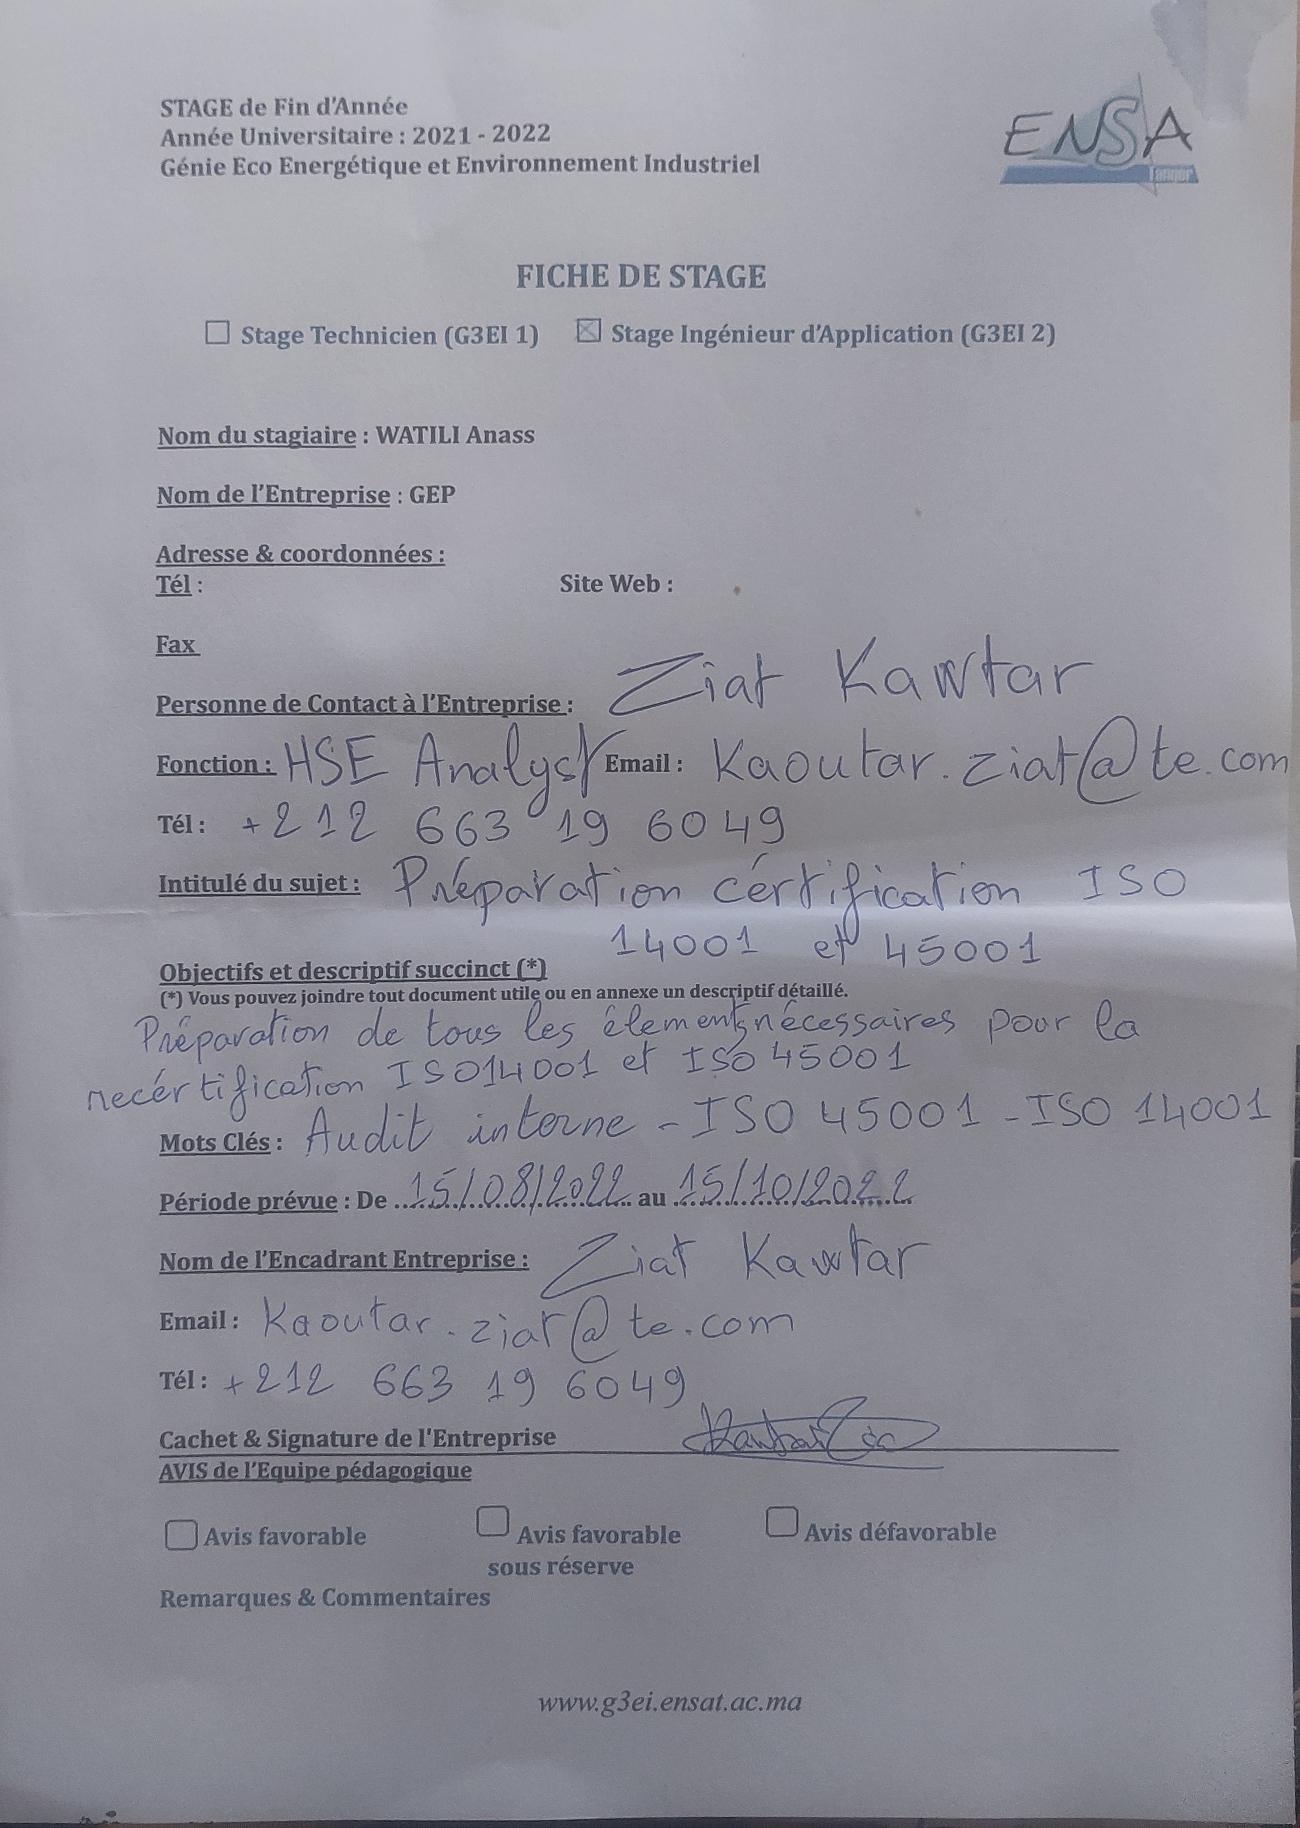 STAGE de Fin d'Année
Année Universitaire : 2021 - 2022
Génie Eco Energétique et Environnement Industriel
ENSA
Tanger
FICHE DE STAGE
☐ Stage Technicien (G3EI 1) ☒ Stage Ingénieur d'Application (G3EI 2)
Nom du stagiaire : WATILI Anass
Nom de l'Entreprise : GEP
Adresse & coordonnées :
Tél : Site Web :
Fax
Personne de Contact à l'Entreprise : Ziat Kawtar
Fonction : HSE Analyst Email : Kaoutar.ziat@te.com
Tél : +212 663 19 6049
Intitulé du sujet : Préparation cértification ISO
14001 et 45001
Objectifs et descriptif succinct (*)
(*) Vous pouvez joindre tout document utile ou en annexe un descriptif détaillé.
Préparation de tous les élements nécessaires pour la
recértification ISO14001 et ISO 45001
Mots Clés : Audit interne - ISO 45001 - ISO 14001
Période prévue : De 15/08/2022 au 15/10/2022
Nom de l'Encadrant Entreprise : Ziat Kawtar
Email : Kaoutar.ziat@te.com
Tél : +212 663 19 6049
Cachet & Signature de l'Entreprise
AVIS de l'Equipe pédagogique
☐ Avis favorable ☐ Avis favorable ☐ Avis défavorable
sous réserve
Remarques & Commentaires
www.g3ei.ensat.ac.ma